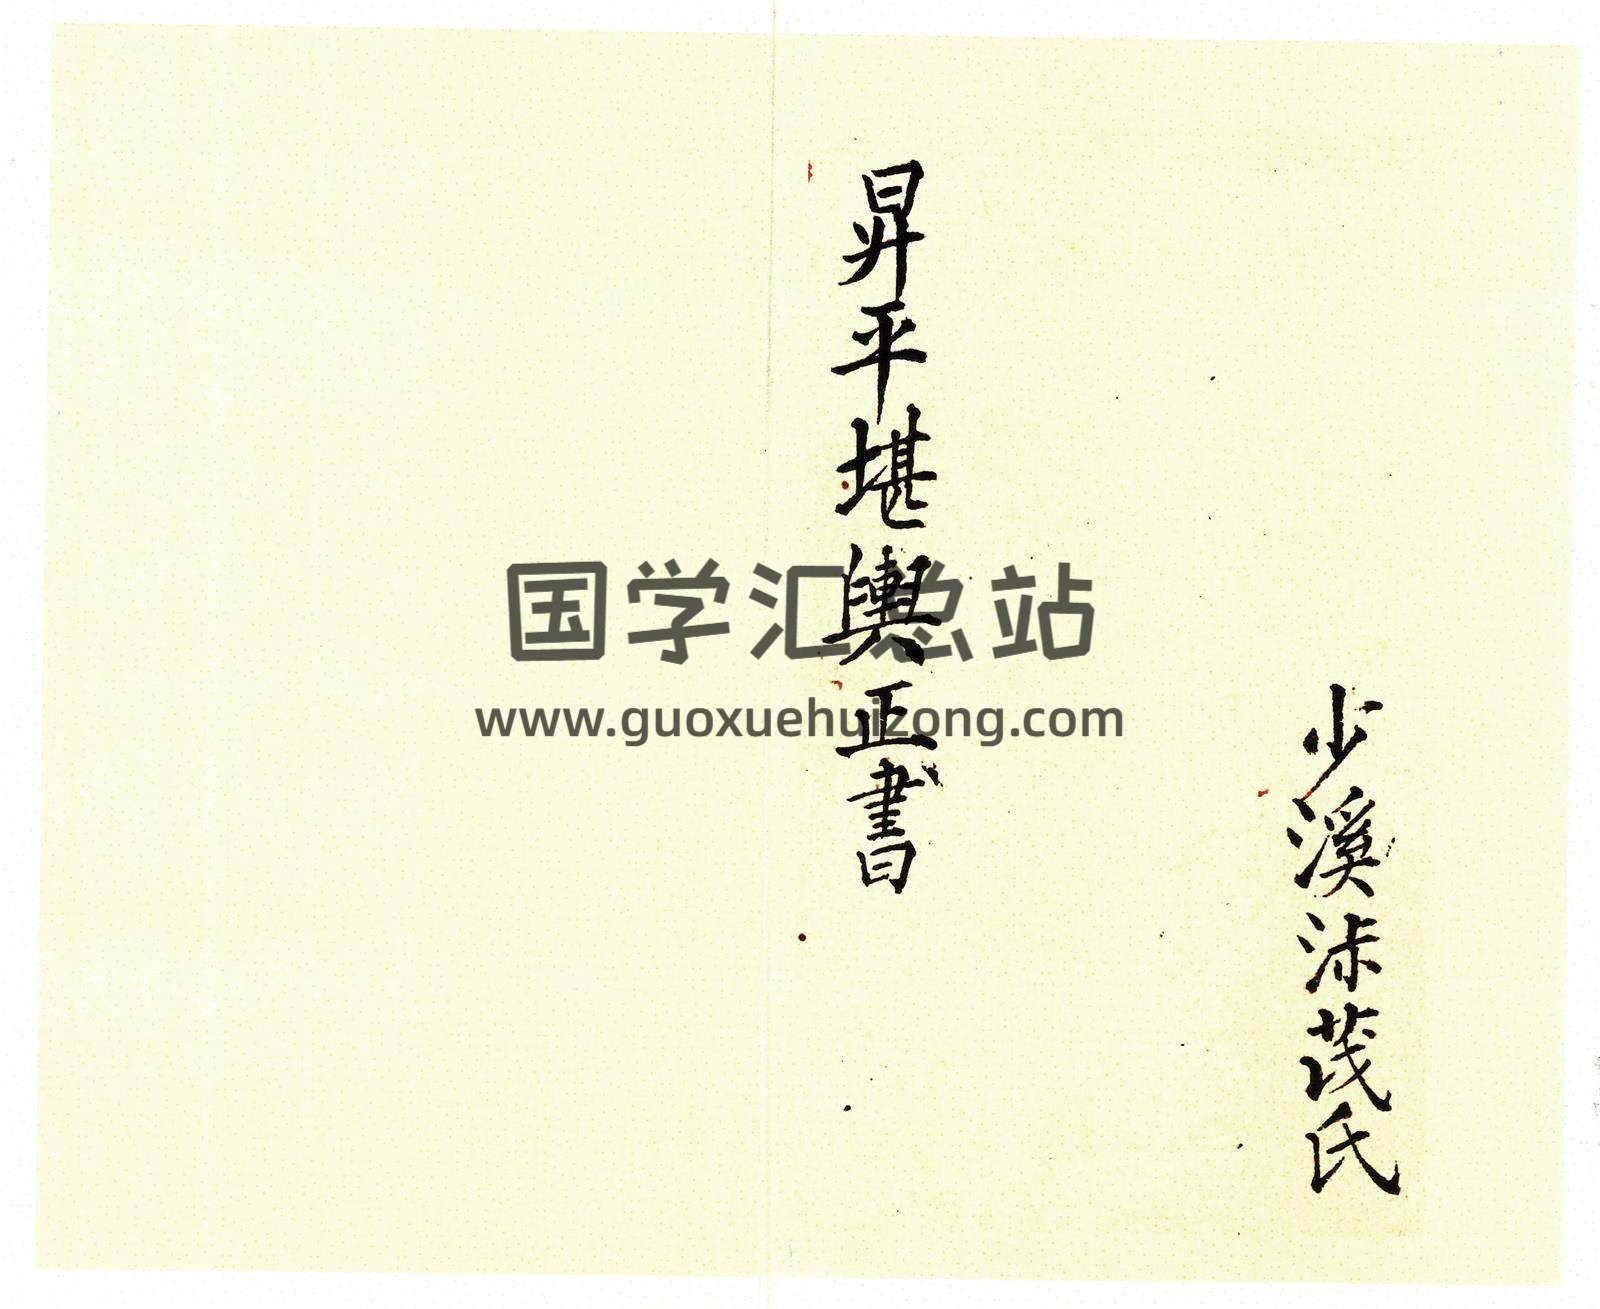 少溪沭茂氏
昇平堪輿正書
国学汇总站
www.guoxuehuizong.com